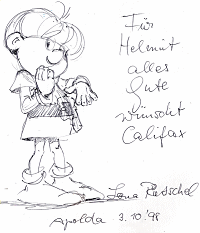 Für
Helmut
alles
Gute
wünscht
Califax
Lona Rietschel
Apolda 3.10.98